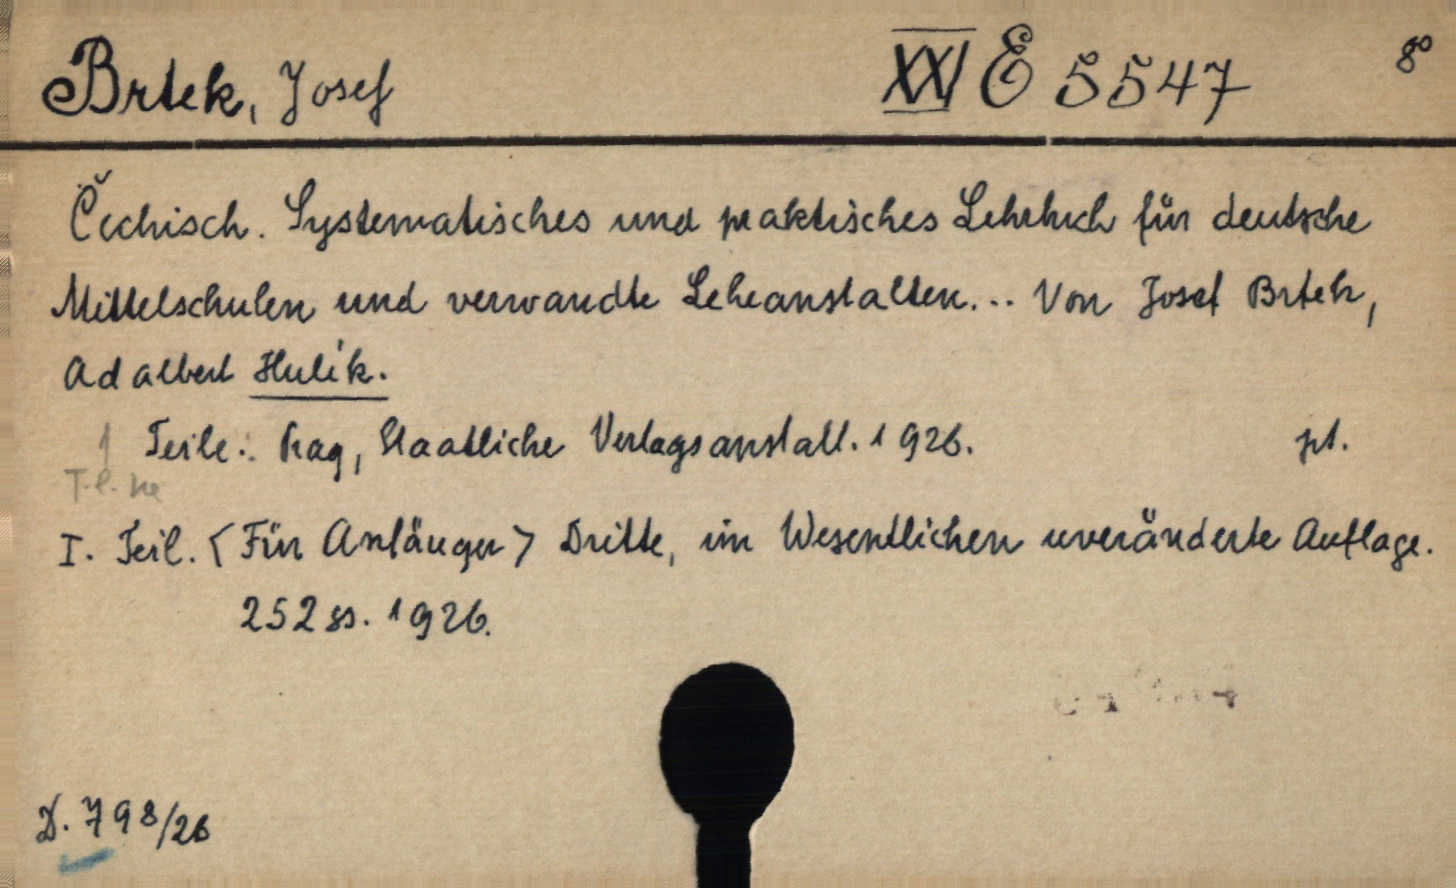 Brtek, Josef XXI E 5547 8°
Čechisch. Systematisches und praktisches Lehrbuch für deutsche
Mittelschulen und verwandte Lehranstalten... Von Josef Brtek,
Adalbert Hulík.
1 Teile.: Prag, Staatliche Verlagsanstalt. 1926. pt.
I. Teil. <Für Anfänger> Dritte, im Wesentlichen unveränderte Auflage.
252 ss. 1926.
D. 798/26